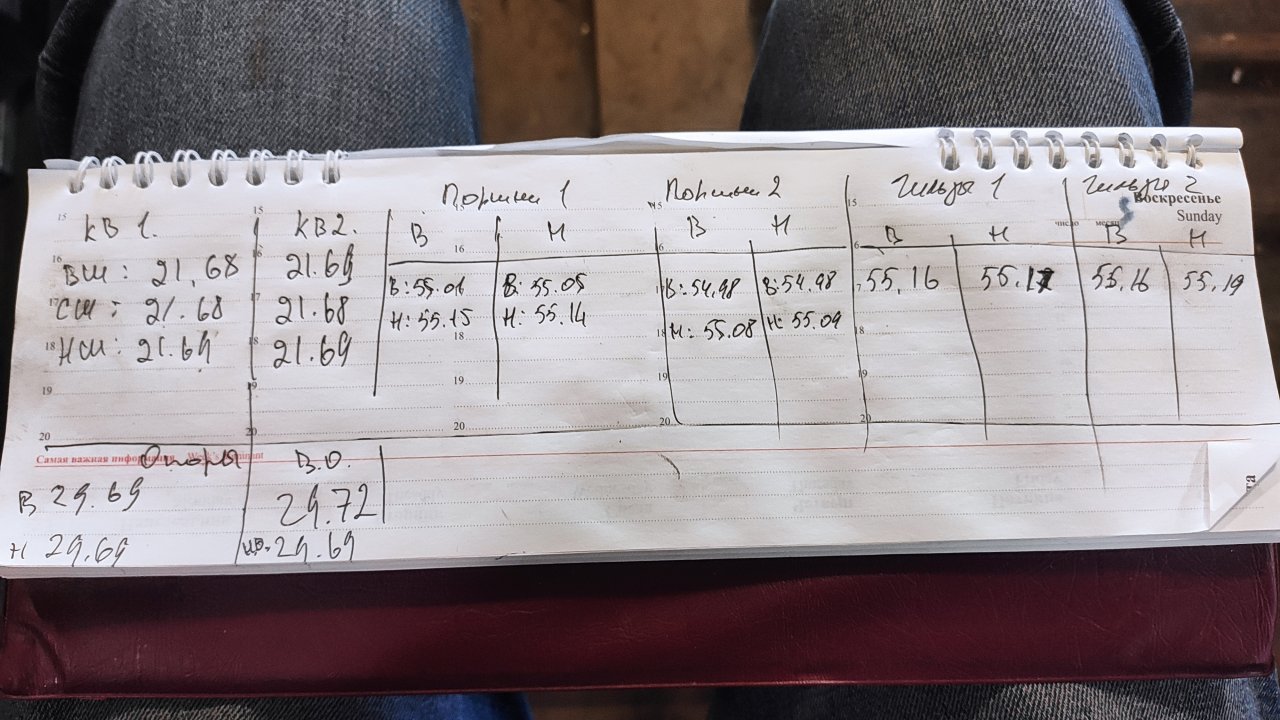 Поршни 1 Поршни 2 Гильзы 1 Гильзы 2
Воскресенье
Sunday
число месяц
КВ 1. КВ2 В Н В Н В Н В Н
ВШ: 21,68 21.69 В: 55.01 В: 55.05 В: 54.98 В: 54.98 55,16 55.17 55.16 55.19
СШ: 21.68 21.68 Н: 55.15 Н: 55.14 Н: 55.08 Н: 55.09
НШ: 21.69 21.69
15 15 15 15
16 16 16 16 16
17 17 17
18 18 18 18 18
19 19 19 19 19
20 20 20 20 20
Самая важная информация
Опоры В.О.
В 29.69 29.72
Н 29.69 29.69